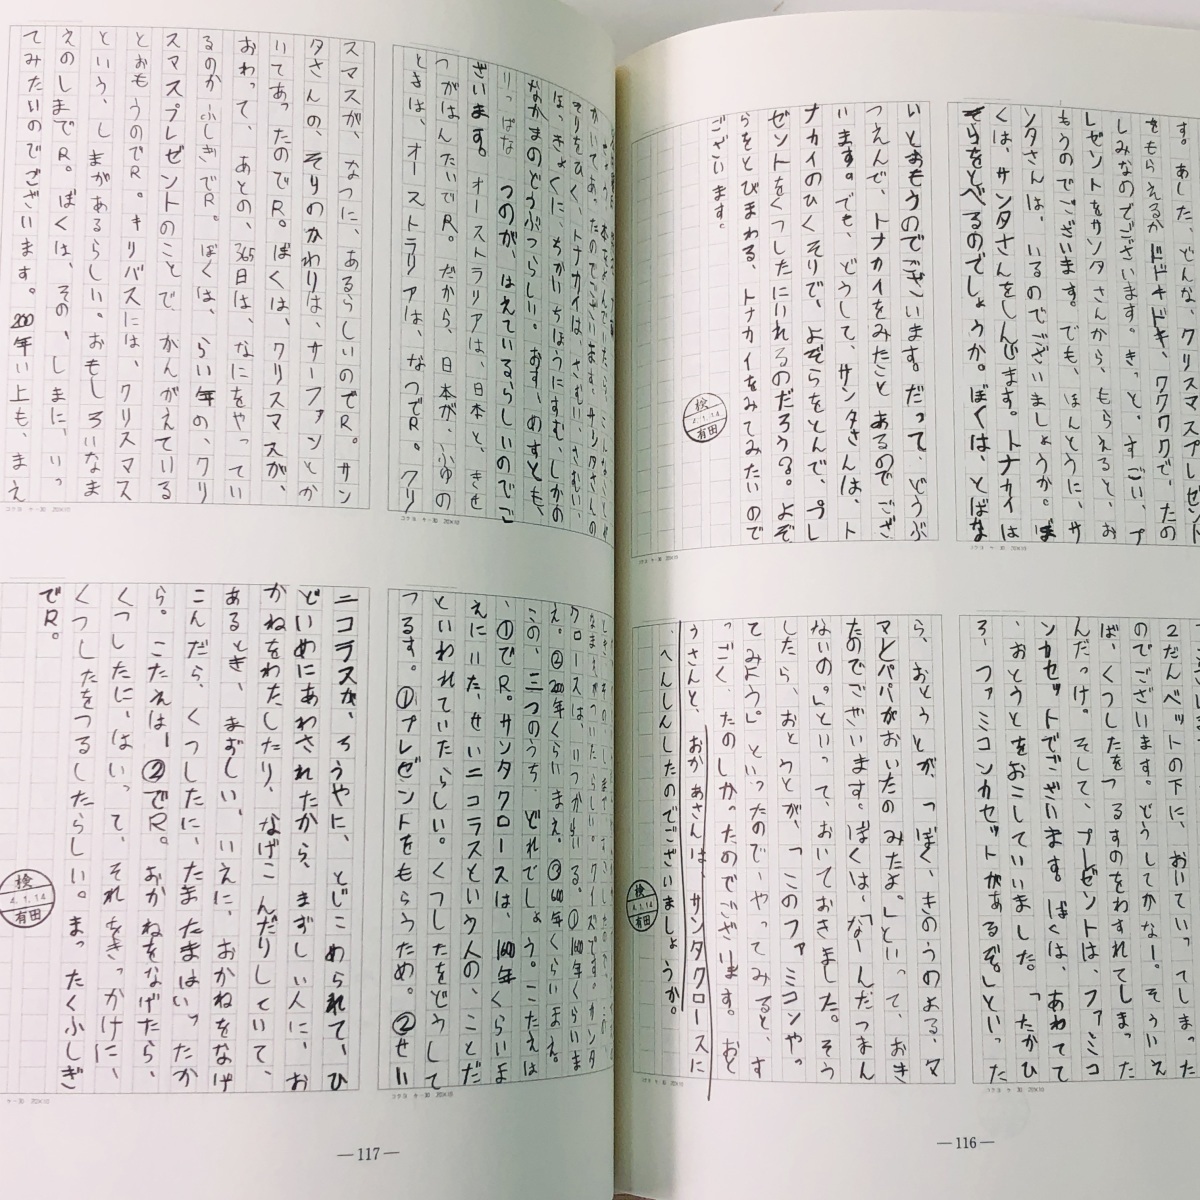 す。あした、どんな、クリスマスプレゼント
をもらえるか ドドキドキ、ワクワクで、たの
しみなのでございます。きっと、すごい、プ
レゼントをサンタさんから、もらえると、お
もうのでございます。でも、ほんとうに、サ
ンタさんは、いるのでございましょうか。ぼ
くは、サンタさんをしんじます。トナカイは
そらをとべるのでしょうか。ぼくは、とばな
コクヨ ケ-30 20×10
いとおもうのでございます。だって、どうぶ
つえんで、トナカイをみたことあるのでござ
います。でも、どうして、サンタさんは、ト
ナカイのひくそりで、よぞらをとんで、プレ
ゼントをくつしたにいれるのだろう？。よぞ
らをとびまわる、トナカイをみてみたいので
ございます。
検
4.1.14
有田
コクヨ ケ-30 20×10
２だんベットの下に
のでございます。どうしてかなー。そういえ
ば、くつしたをつるすのをわすれてしまった
んだっけ。そして、プーゼントは、ファミコ
ンカセットでございます。ぼくは、あわてて
、おとうとをおこしていました。「たかひ
ろ、ファミコンカセットがあるぞ。」といった
コクヨ ケ-30 20×10
ら、おとうとが、っぼく、きのうのよる、マ
マとパパがおいたのみたよ。」といって、おき
たのでございます。ぼくは、「なーんだつまん
ないの。」といって、おいておきました。そう
したら、おとうとが、「このファミコンやっ
てみよう。」といったので、やってみると、す
っごく、たのしかったのでございます。おと
うさんと、おかあさんは、サンタクロースに
、へんしんしたのでございましょうか。
検
4.1.14
有田
コクヨ ケ-30 20×10
—116—
かいてあったのでございます。サンタさんの
そりをひく、トナカイは、さむい、さむい、
ほっきょくに、ちかいちほうにすむ、しかの
なかまのどうぶつらしい。おす、めすとも、
りっぱな つのが、はえているらしいのでご
ざいます。オーストラリアは、日本と、きせ
つがはんたいでR。だから、日本が、ふゆの
ときは、オーストラリアは、なつでR。クリ
コクヨ ケ-30 20×10
スマスが、なつに、あるらしいのでR。サン
タさんの、そりのかわりは、サーファンとか
いてあったのでR。ぼくは、クリスマスが、
おわって、あとの、365日は、なにをやってい
るのかふしぎでR。ぼくは、らい年の、クリ
スマスプレゼントのことで、かんがえている
とおもうのでR。キリバスには、クリスマス
という、しまがあるらしい。おもしろいなま
えのしまでR。ぼくは、その、しまに、いっ
てみたいのでございます。200年い上も、まえ
コクヨ ケ-30 20×10
なまえがついたらしい。クイズです。サンタ
クロースは、いつからいる。①1600年くらいま
え。②200年くらいまえ。③600年くらいまえ。
この、三つのうち、どれでしょう。こたえは
、①でR。サンタクロースは、1600年くらいま
えにいた、せいニコラスという人の、ことだ
といわれていたらしい。くつしたをどうして
つるす。①プレゼントをもらうため。②せい
コクヨ ケ-30 20×10
ニコラスが、ろうやに、とじこめられて、ひ
どいめにあわされたから、まずしい人に、お
かねをわたしたり、なげこんだりしていて、
あるとき、まずしい、いえに、おかねをなげ
こんだら、くつしたに、たまたまはいったか
ら。こたえは―②でR。おかねをなげたら、
くつしたに、はいって、それをきっかけに、
くつしたをつるしたらしい。まったくふしぎ
でR。
検
4.1.14
有田
ケ-30 20×10
—117—